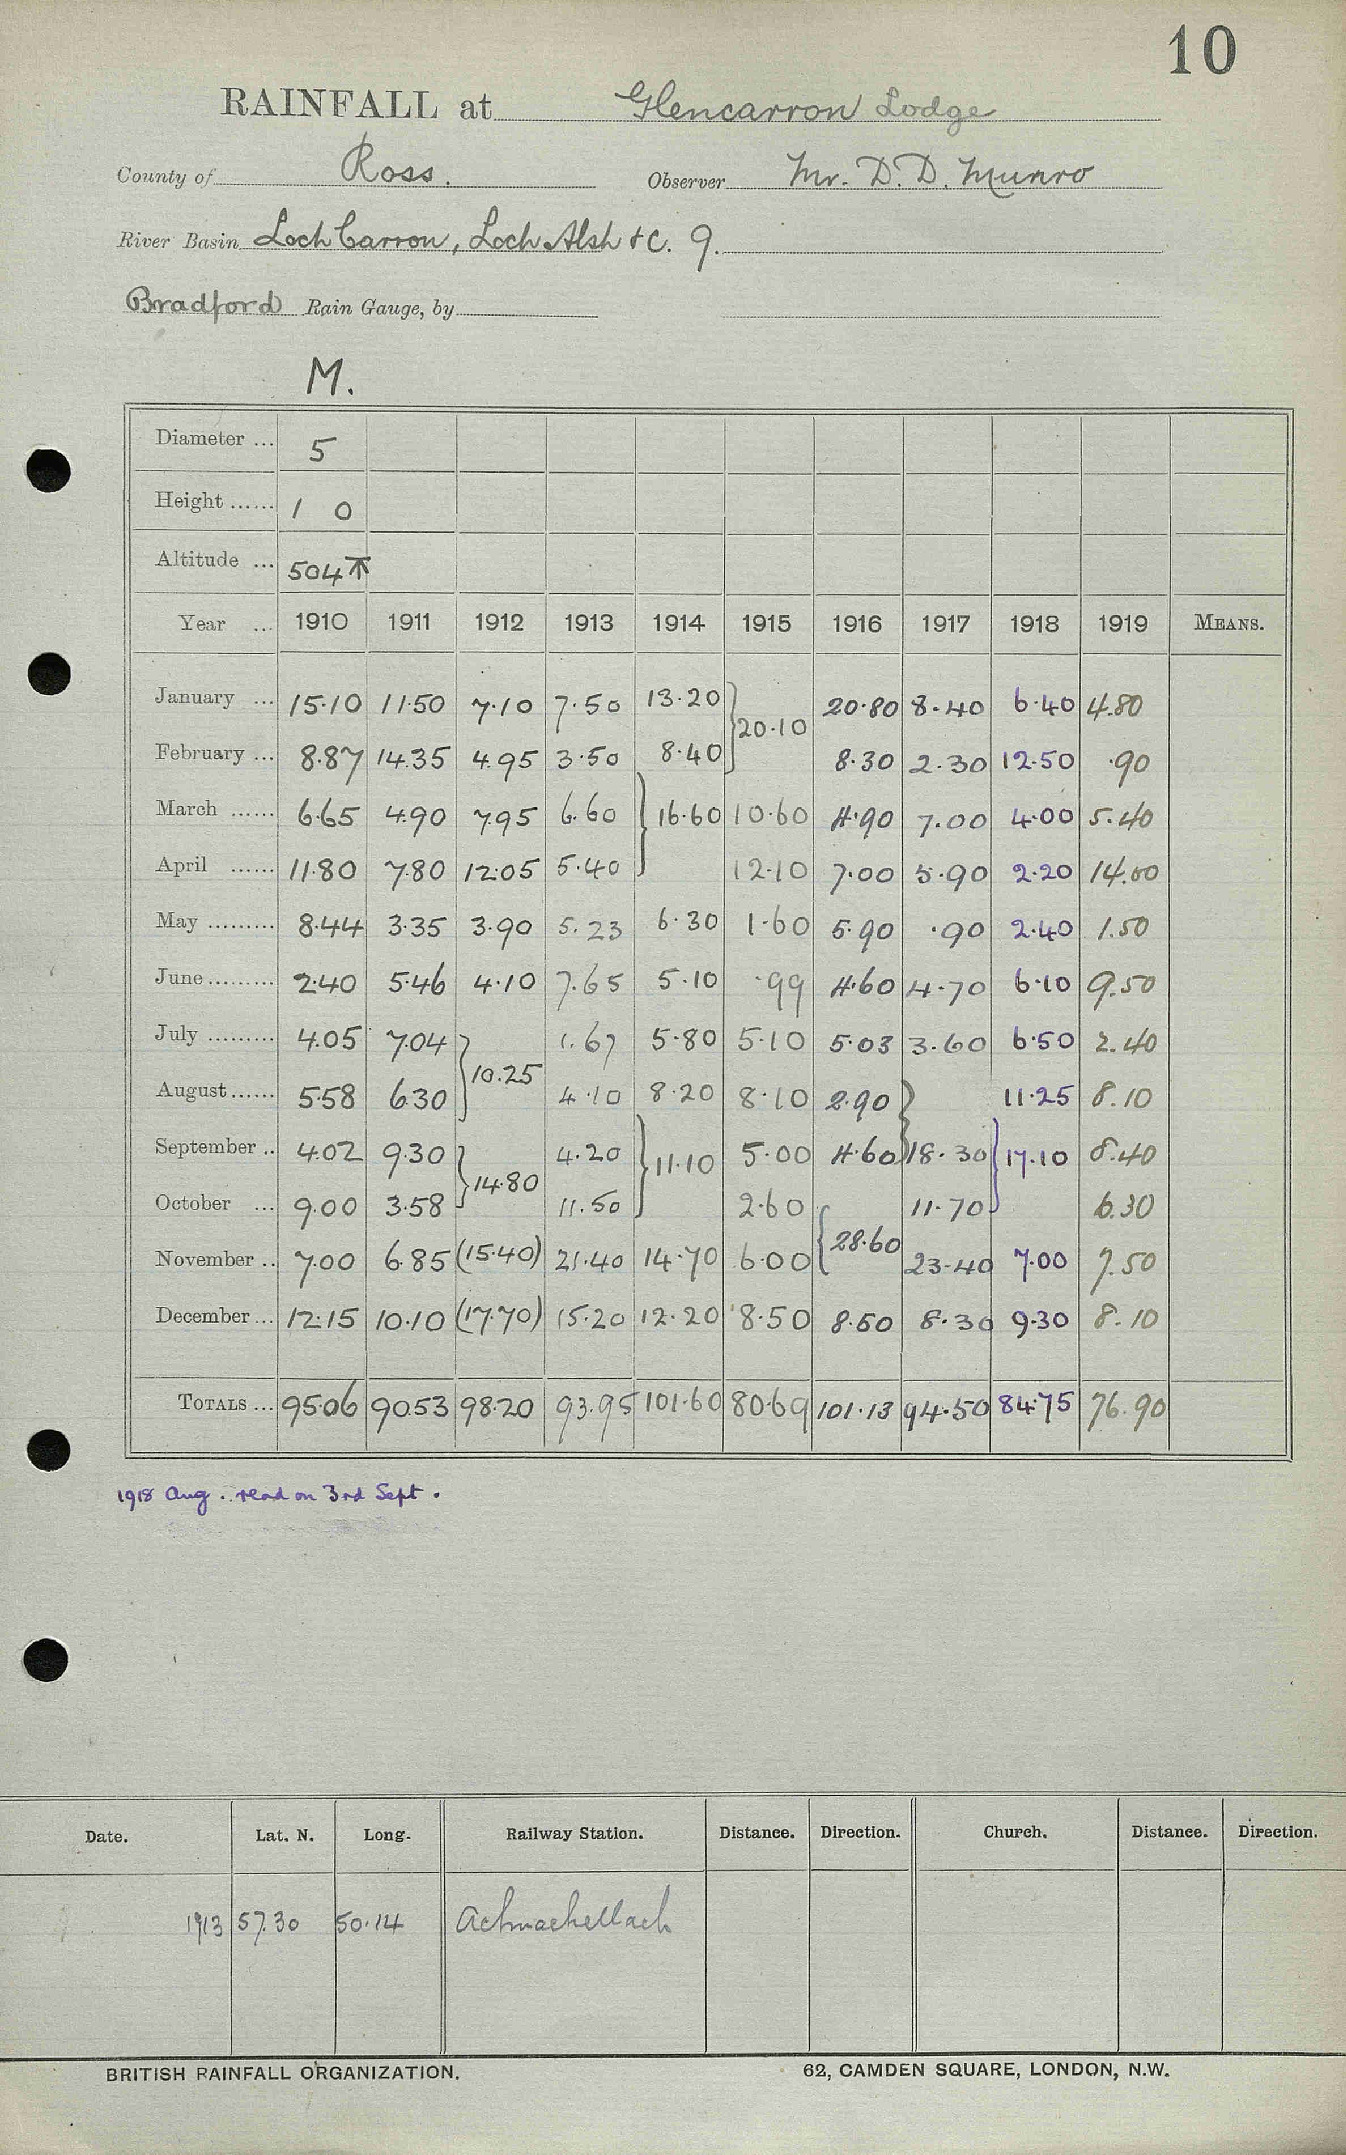 10
RAINFALL at Glencarron Lodge
County of Ross. Observer Mr. D. D. Munro
River Basin Loch Carron, Loch Alsh & C. 9.
Bradford Rain Gauge, by
M.
Diameter ... 5
Height ...... 1 0
Altitude ... 504
Year ... 1910 1911 1912 1913 1914 1915 1916 1917 1918 1919 MEANS.
January ... 15.10 11.50 7.10 7.50 13.20 20.10 20.80 8.40 6.40 4.80
February ... 8.87 14.35 4.95 3.50 8.40 8.30 2.30 12.50 .90
March ...... 6.65 4.90 7.95 6.60 16.60 10.60 4.90 7.00 4.00 5.40
April ...... 11.80 7.80 12.05 5.40 12.10 7.00 5.90 2.20 14.00
May ......... 8.44 3.35 3.90 5.23 6.30 1.60 5.90 .90 2.40 1.50
June ......... 2.40 5.46 4.10 7.65 5.10 .99 4.60 4.70 6.10 9.50
July ......... 4.05 7.04 10.25 1.67 5.80 5.10 5.03 3.60 6.50 2.40
August ...... 5.58 6.30 4.10 8.20 8.10 2.90 11.25 8.10
September .. 4.02 9.30 14.80 4.20 11.10 5.00 4.60 18.30 17.10 8.40
October ... 9.00 3.58 11.50 2.60 28.60 11.70 6.30
November .. 7.00 6.85 (15.40) 21.40 14.70 6.00 23.40 7.00 7.50
December ... 12.15 10.10 (17.70) 15.20 12.20 8.50 8.50 8.30 9.30 8.10
TOTALS ... 95.06 90.53 98.20 93.95 101.60 80.69 101.13 94.50 84.75 76.90
1918 Aug. read on 3rd Sept.
Date. Lat. N. Long. Railway Station. Distance. Direction. Church. Distance. Direction.
1913 57.30 50.14 Achnashellach
BRITISH RAINFALL ORGANIZATION. 62, CAMDEN SQUARE, LONDON, N.W.